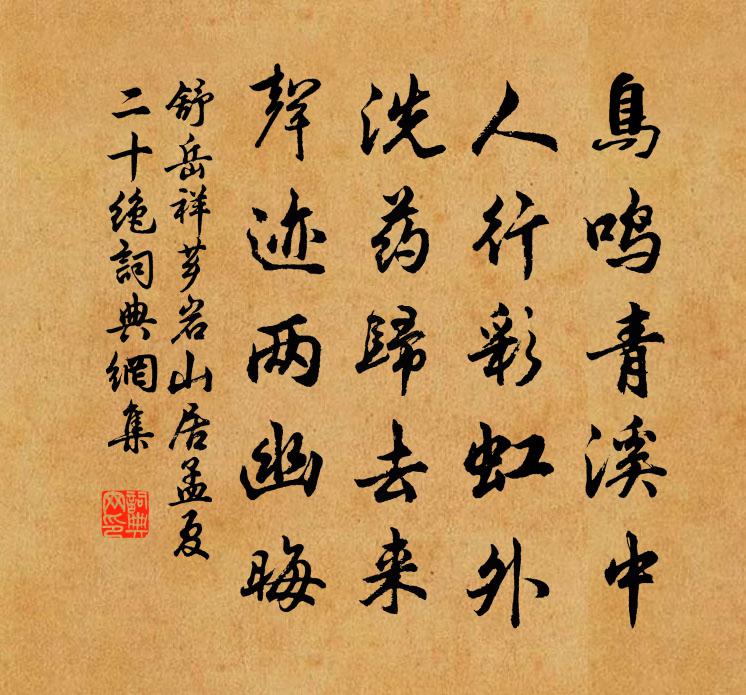 鳥鸣青溪中
人行彩虹外
洗药歸去来
聲迹两幽晦
舒岳祥芗岩山居孟夏
二十绝詞典網集
詞典网印